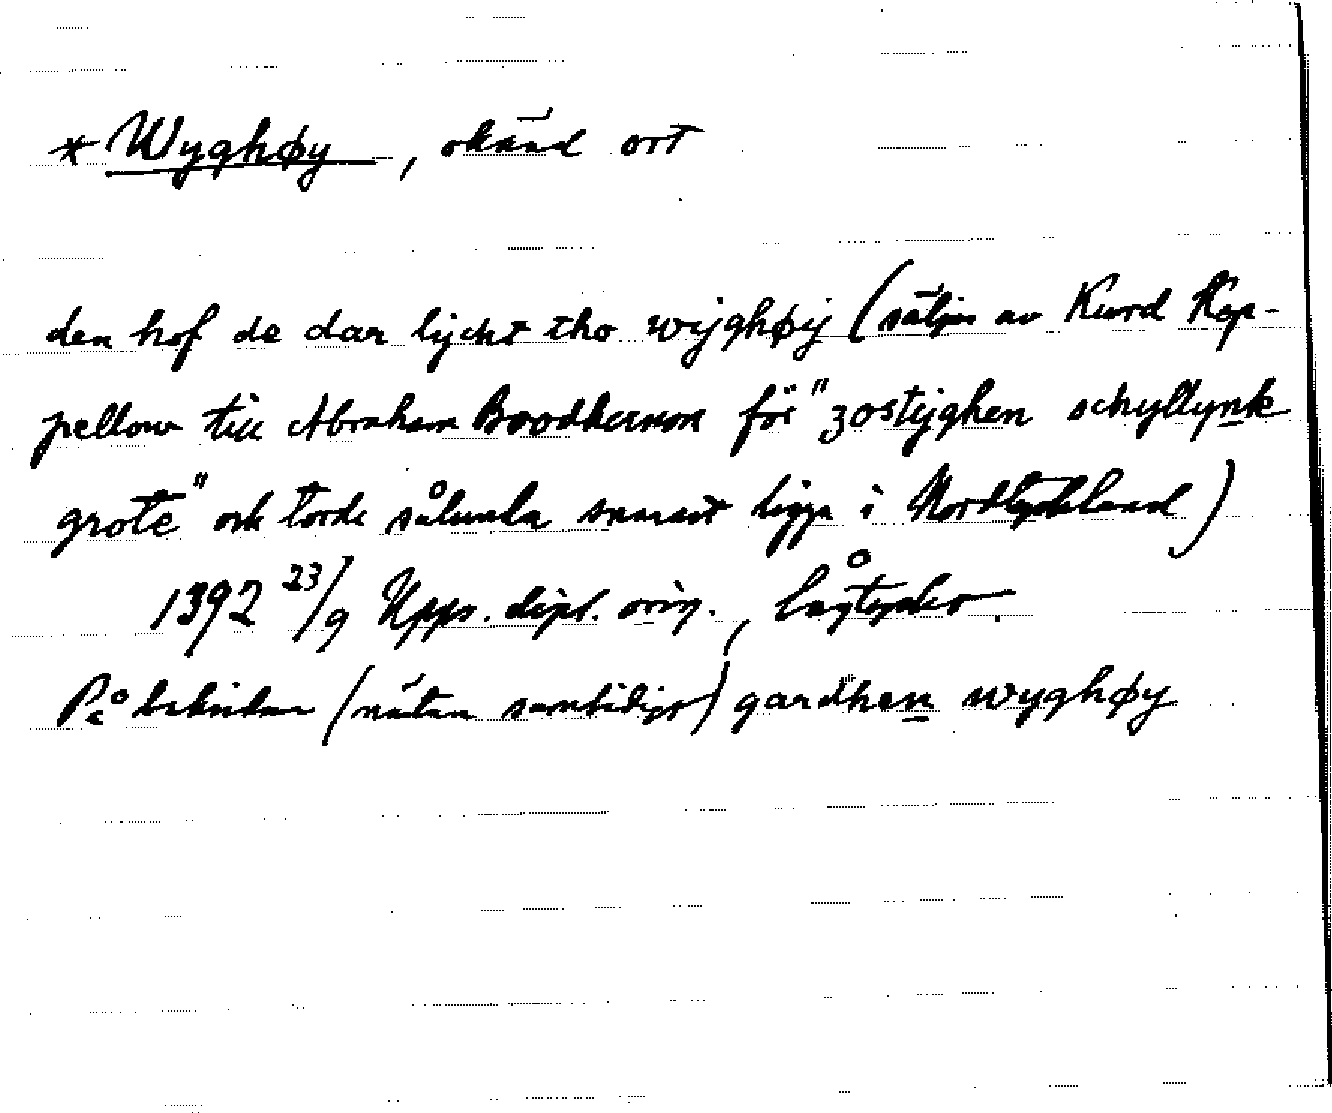 * Wyghøy, okänd ort
den hof de dar lycht tho wyghøy (säljes av Kurd Kep-
pellow till Abraham Broodherman för "zostyghen schyllynk
grote" och torde sålunda snarast ligga i Nordtyskland)
1392 23/9 Upps. dipl. orig., lågtyska.
På baksidan (nästan samtidigt) gardhen wyghøy